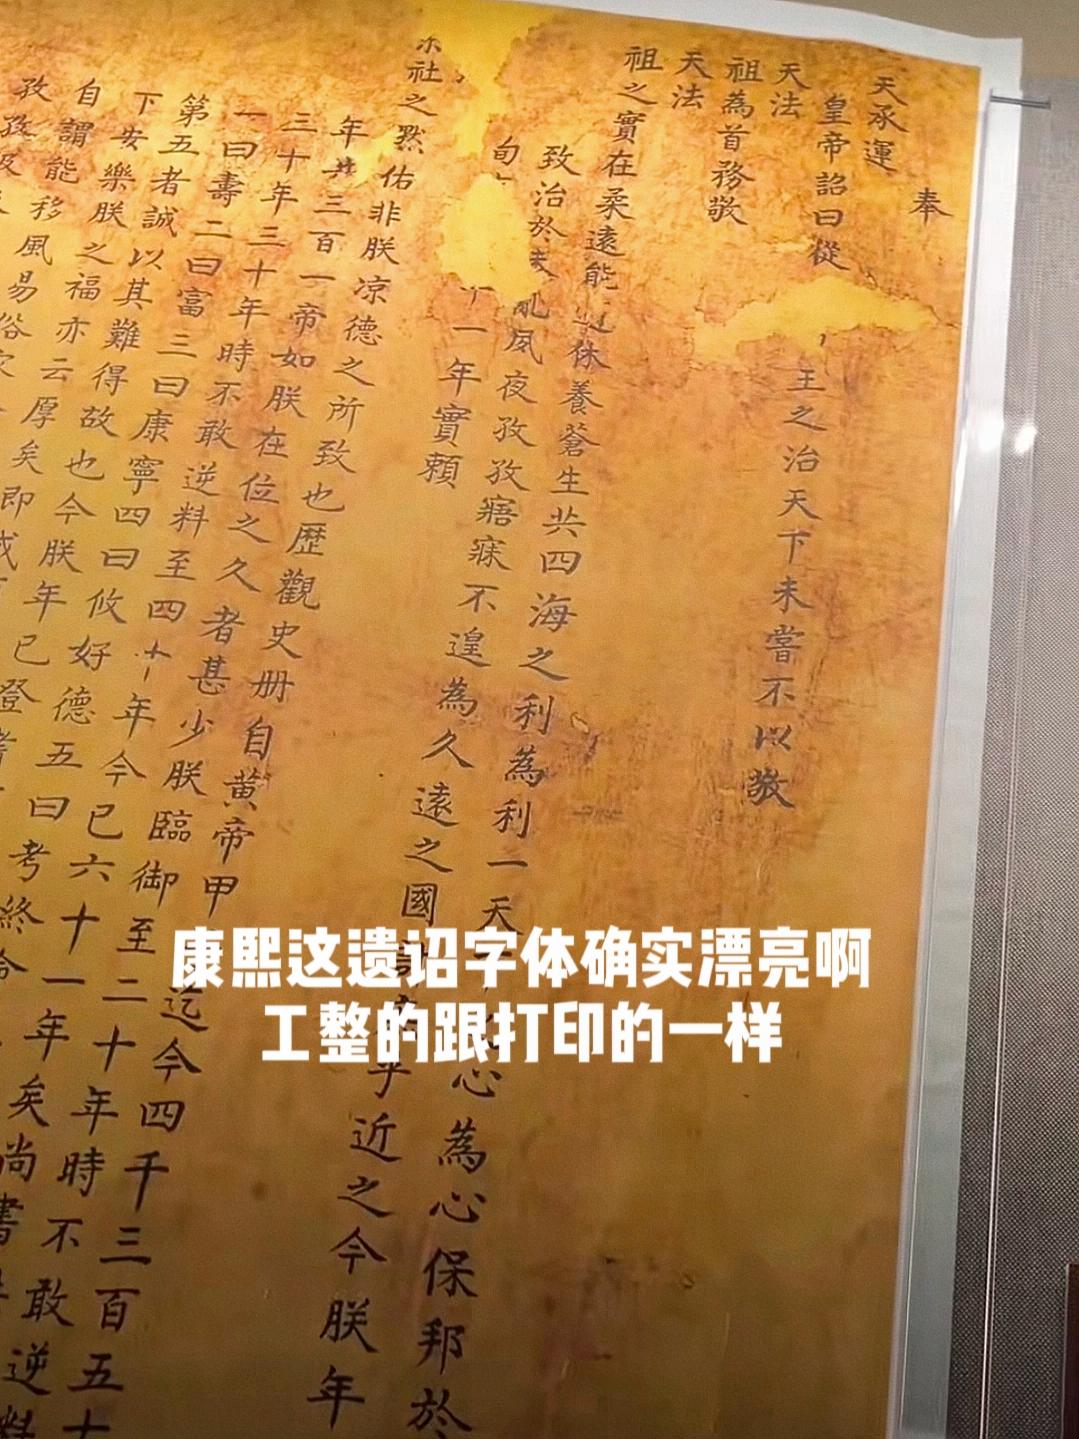 奉
天承運
皇帝詔曰從王之治天下未嘗不以敬
天法
祖為首務敬
天法
祖之實在柔遠能休養蒼生共四海之利為利一天心為心保邦於
致治於未亂夙夜孜孜寤寐不遑為久遠之國計乎近之今朕年
旬十一年實賴
宗社之黙佑非朕凉德之所致也歷觀史册自黄帝甲迄今四千三百五十
年共三百一帝如朕在位之久者甚少朕臨御至二十年時不敢逆料
三十年三十年時不敢逆料至四十年今已六十一年矣尚書
一曰壽二曰富三曰康寧四曰攸好德五曰考終命
第五者誠以其難得故也今朕年已登耆
下安樂朕之福亦云厚矣即或
自謂能移風易俗家
孜孜汲
康熙这遗诏字体确实漂亮啊
工整的跟打印的一样